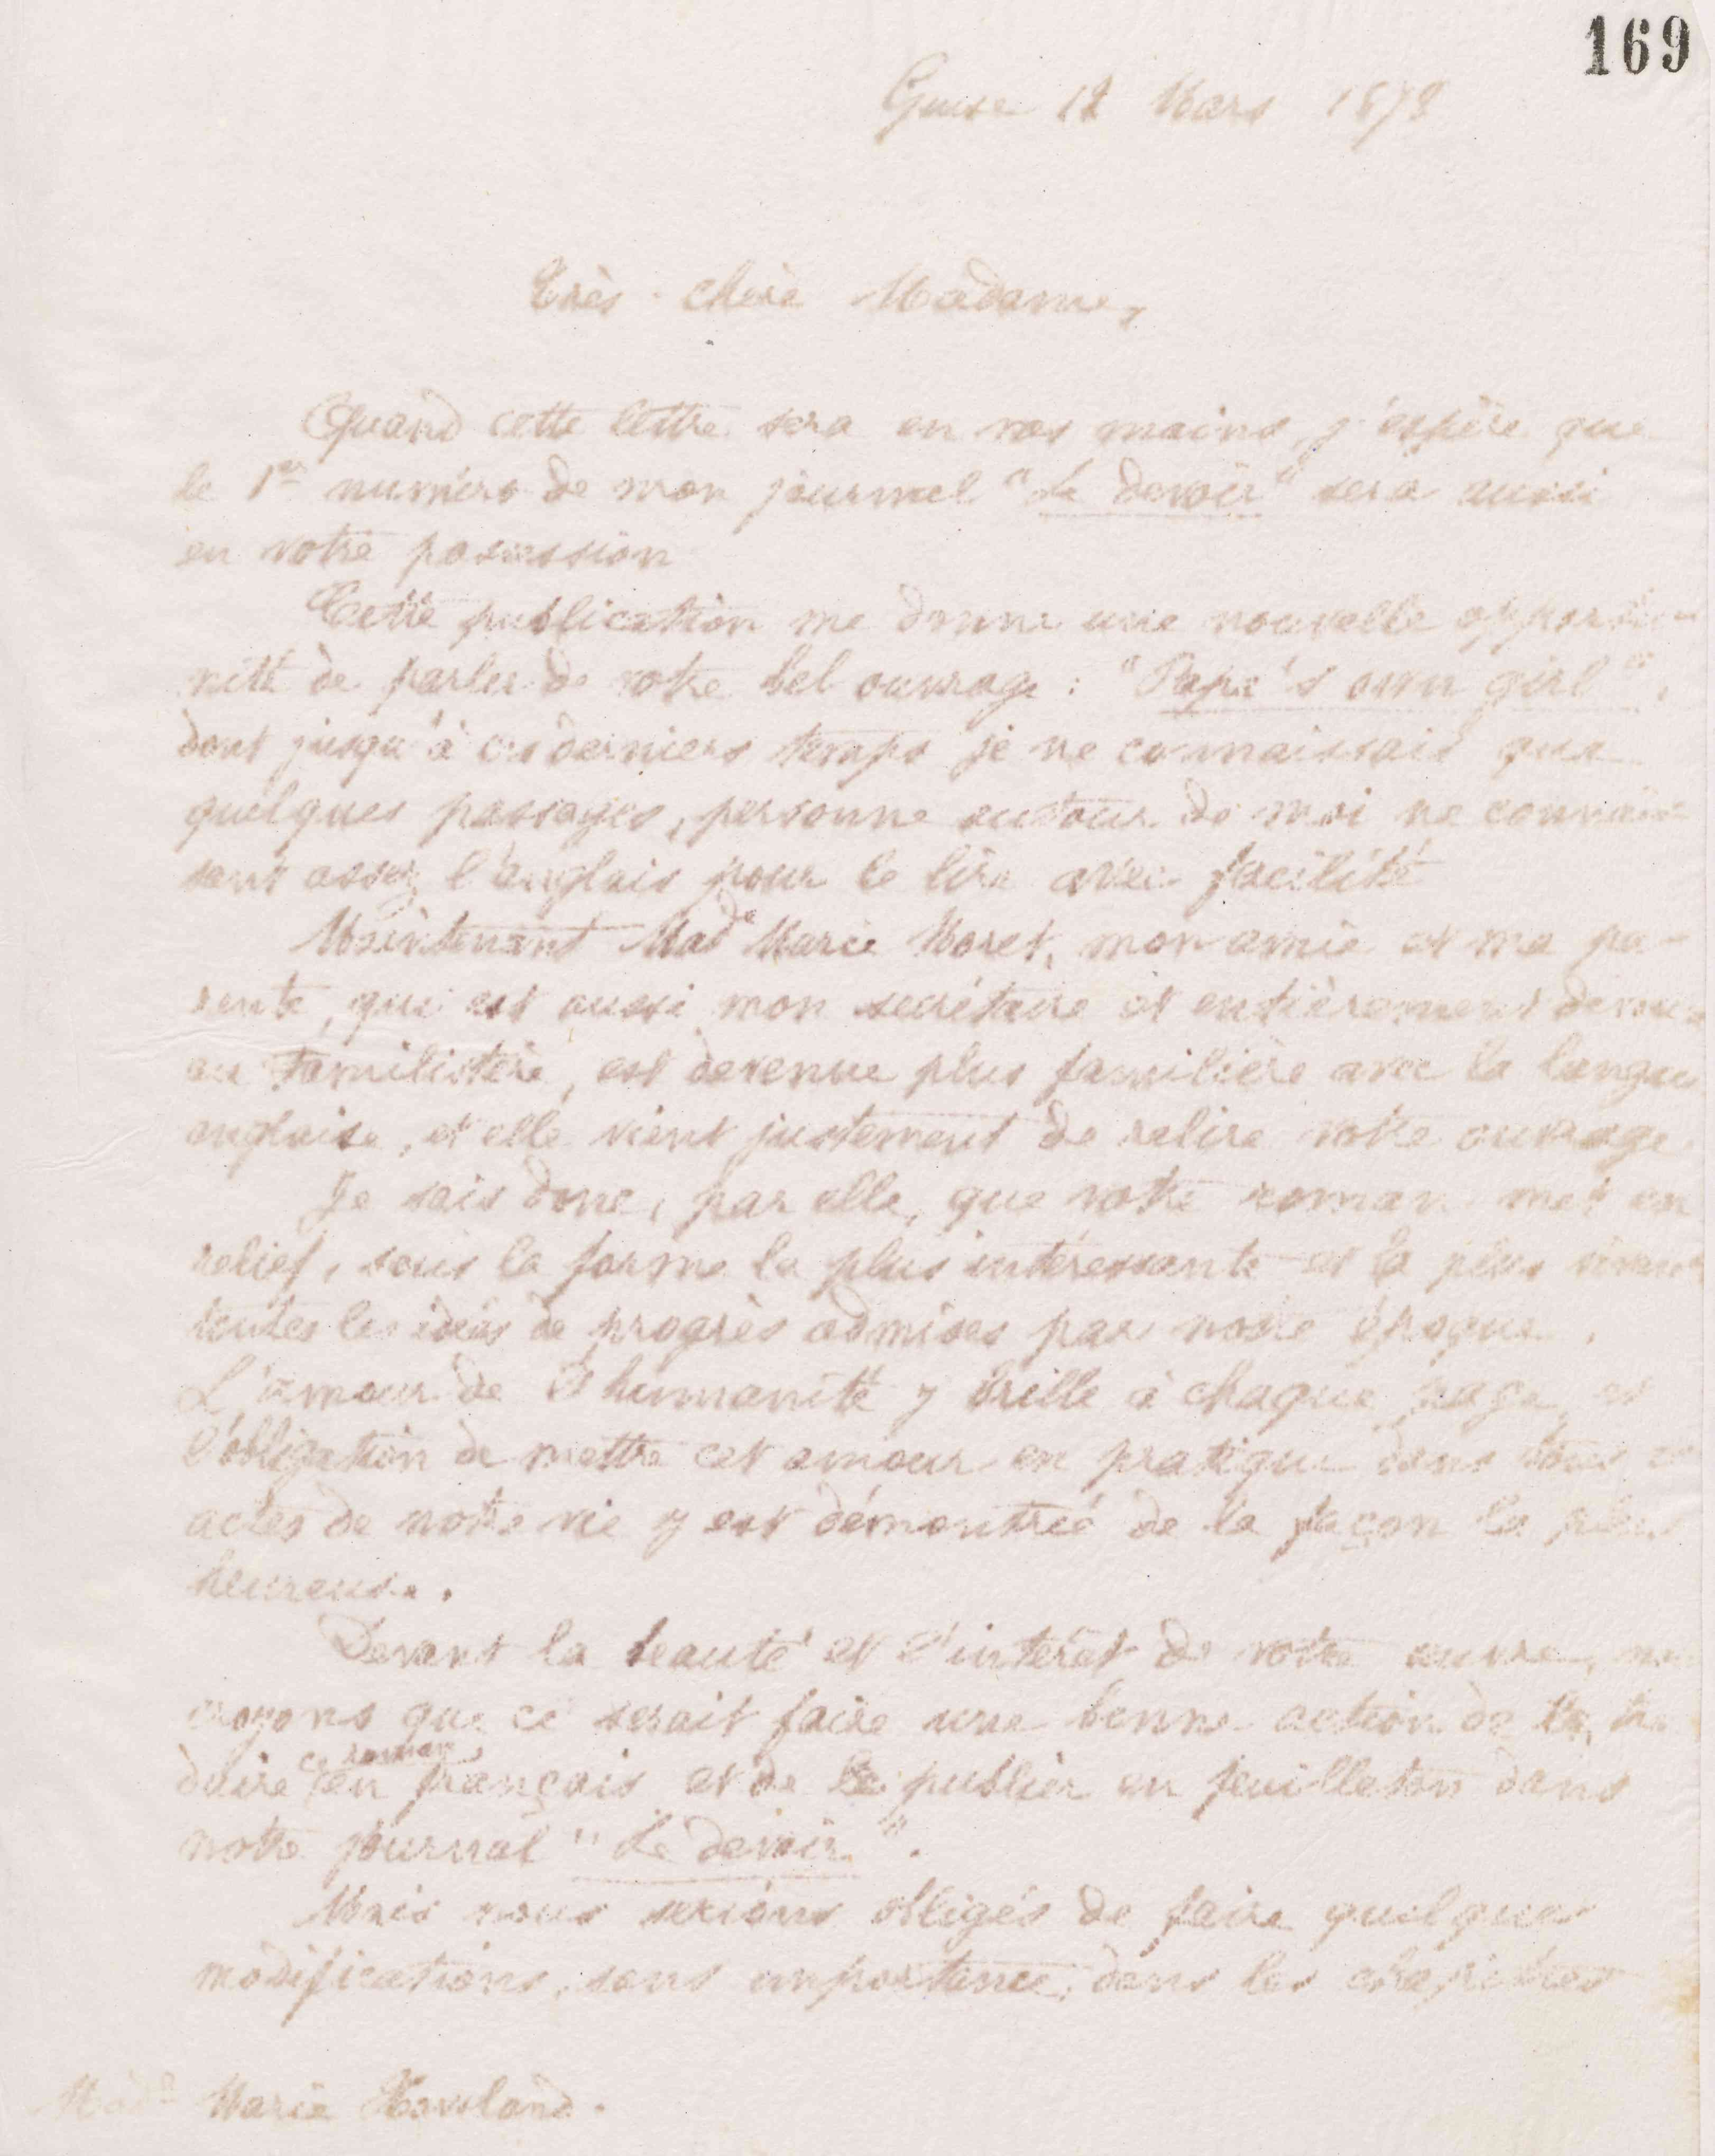 169
Guise 12 Mars 1878
Très chère Madame,
Quand cette lettre sera en vos mains, j'espère que
le 1er numéro de mon journal "Le devoir" sera aussi
en votre possession
Cette publication me donne une nouvelle opportu-
nité de parler de votre bel ouvrage : "Papa's own girl",
dont jusqu'à ces derniers temps je ne connaissais que
quelques passages, personne autour de moi ne connais-
sant assez l'anglais pour le lire avec facilité
Maintenant Made Marie Moret, mon amie et ma pa-
rente, qui est aussi mon secrétaire et entièrement dévouée
au Familistère, est devenue plus familière avec la langue
anglaise, et elle vient justement de relire votre ouvrage
Je sais donc, par elle, que votre roman met en
relief, sous la forme la plus intéressante et la plus
toutes les idées de progrès admises par notre époque.
L'amour de l'humanité y brille à chaque page et
l'obligation de mettre cet amour en pratique dans tous
actes de notre vie y est démontrée de la façon la plus
heureuse.
Devant la beauté et l'intérêt de votre œuvre, nous
croyons que ce serait faire une bonne action de tra
duire ce roman, en français et de le publier en feuilleton dans
notre journal "Le devoir".
Mais nous serions obligés de faire quelques
modifications, sans importance, dans les chapitres
Made Marie Howland.